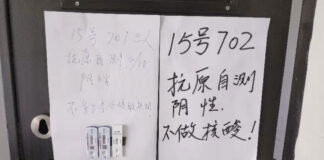 15号 701 三人
抗原自测
阴性
15号702
抗原自测
阴性.
不做核酸!